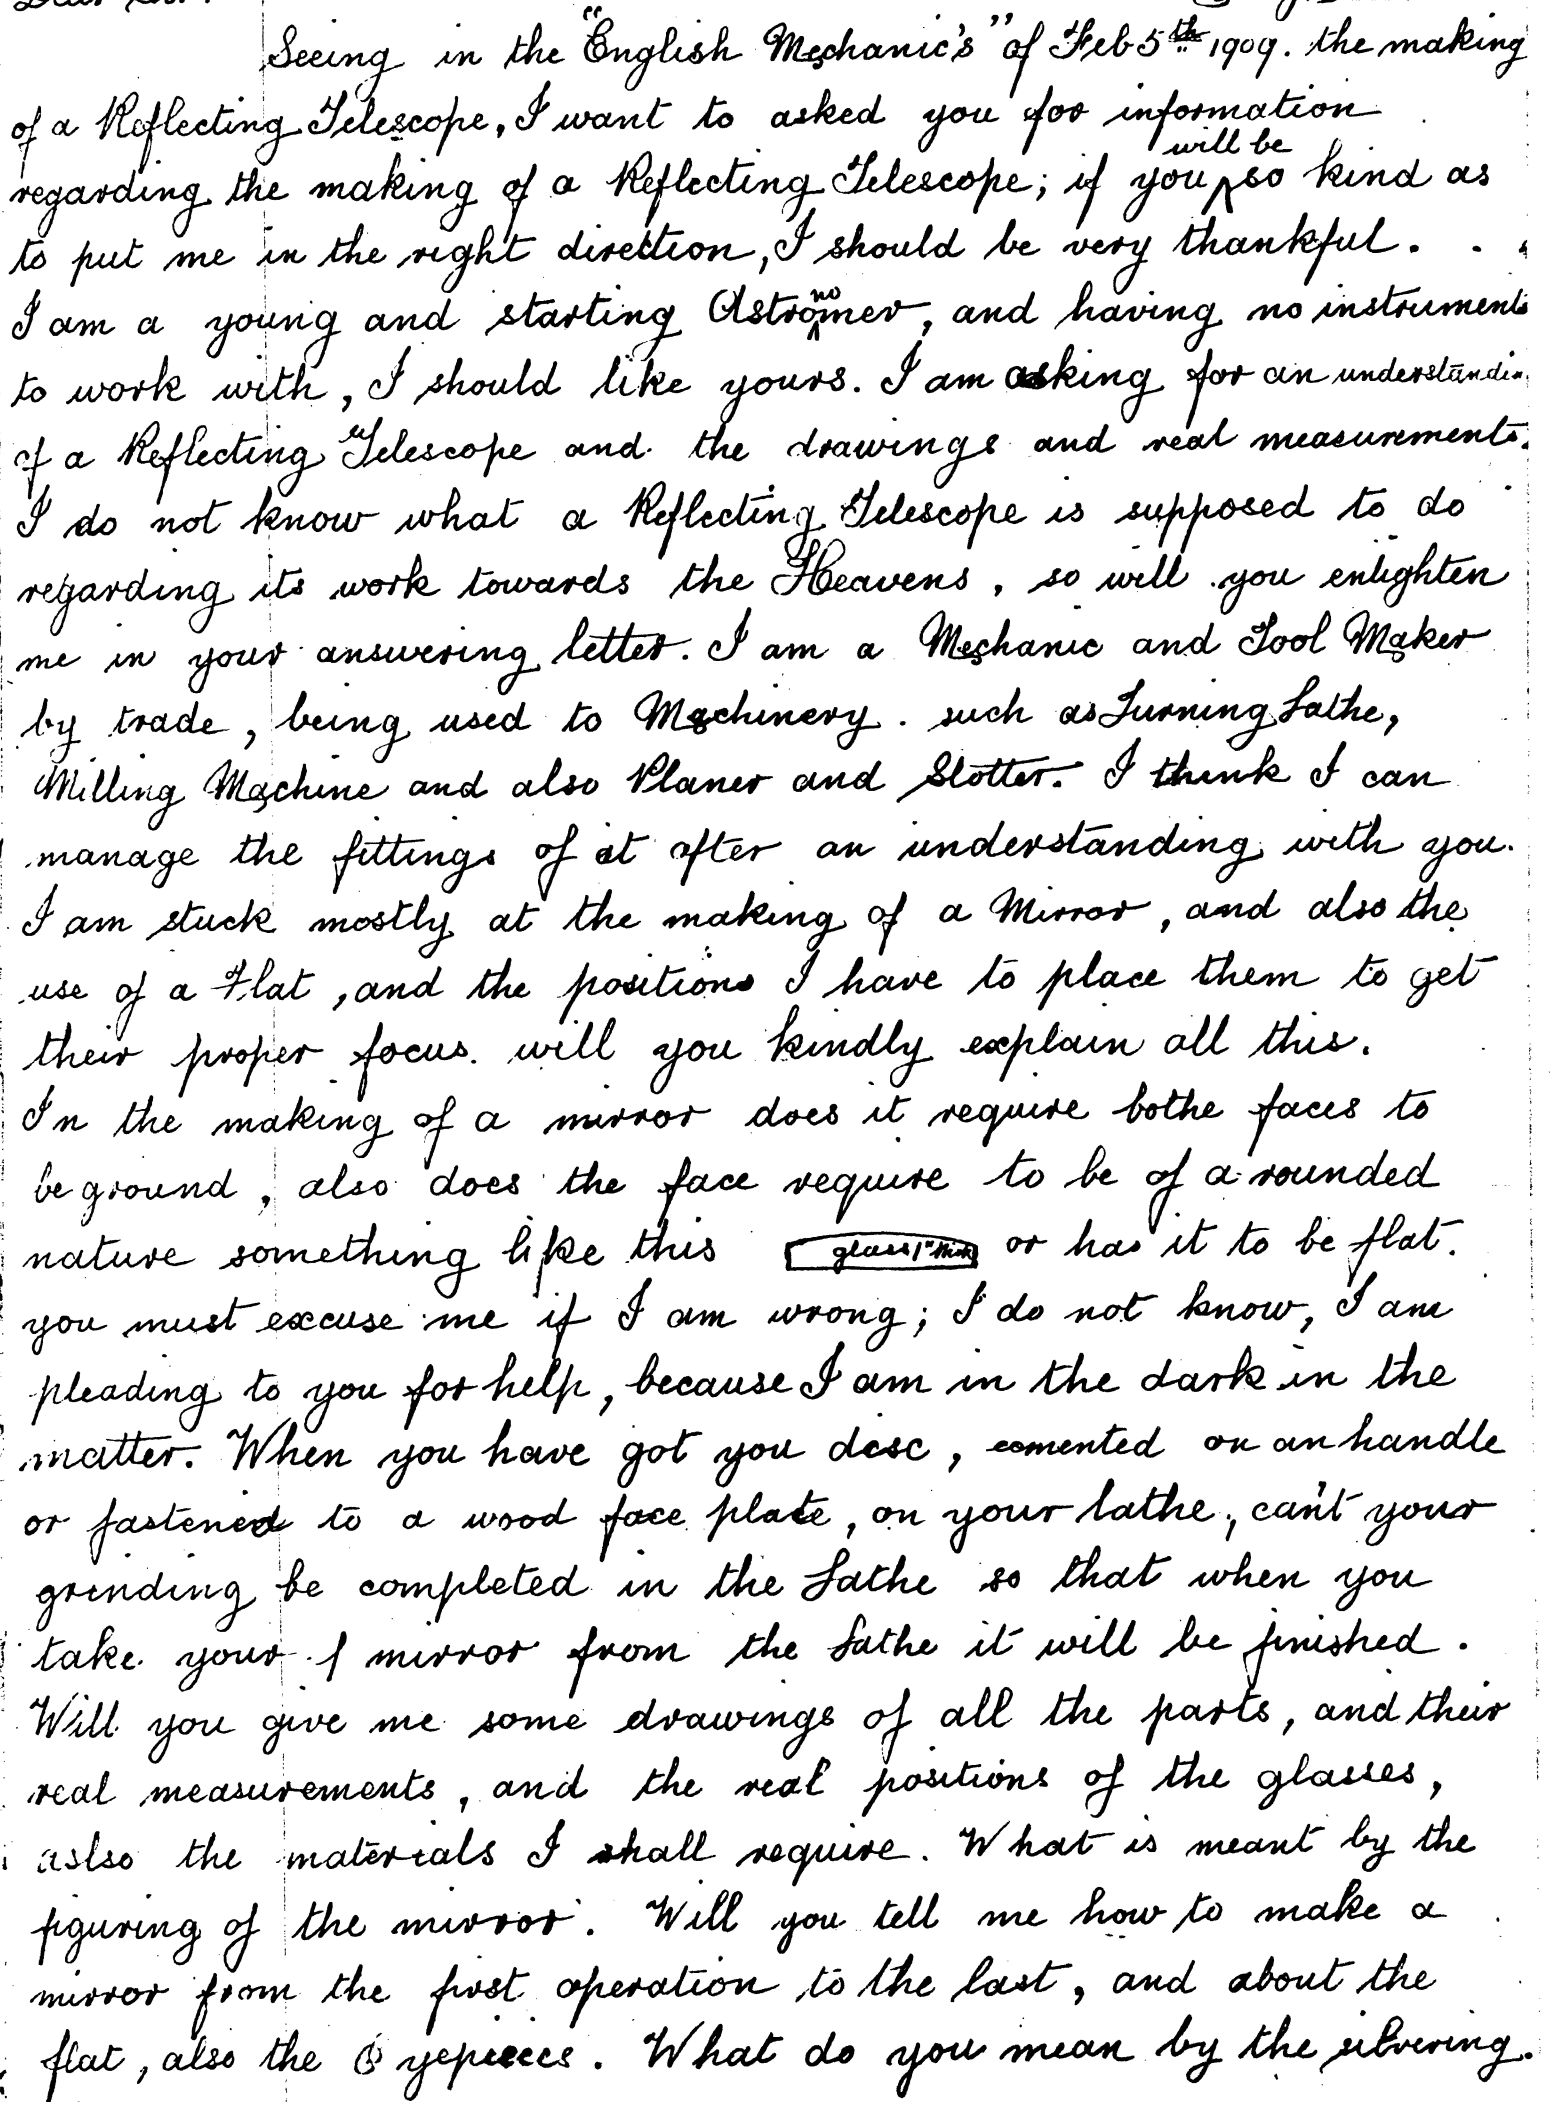 Dear Sir.
Seeing in the "English Mechanic's" of Feb 5th 1909. the making
of a Reflecting Telescope, I want to asked you for information
will be
regarding the making of a Reflecting Telescope; if you so kind as
to put me in the right direction, I should be very thankful.
no
I am a young and starting Astromer, and having no instruments
to work with, I should like yours. I am asking for an understandin
of a Reflecting Telescope and the drawings and real measurements.
I do not know what a Reflecting Telescope is supposed to do
regarding its work towards the Heavens, so will you enlighten
me in your answering letter. I am a Mechanic and Tool Maker
by trade, being used to Machinery. such as Turning Lathe,
Milling Machine and also Planer and Slotter. I think I can
manage the fittings of it after an understanding with you.
I am stuck mostly at the making of a Mirror, and also the
use of a Flat, and the positions I have to place them to get
their proper focus. will you kindly explain all this.
In the making of a mirror does it require bothe faces to
be ground, also does the face require to be of a rounded
nature something like this glass 1" thick or has it to be flat.
you must excuse me if I am wrong; I do not know, I am
pleading to you for help, because I am in the dark in the
matter. When you have got you disc, cemented on an handle
or fastened to a wood face plate, on your lathe, can't your
grinding be completed in the Lathe so that when you
take your mirror from the Lathe it will be finished.
Will you give me some drawings of all the parts, and their
real measurements, and the real positions of the glasses,
aslso the materials I shall require. What is meant by the
figuring of the mirror. Will you tell me how to make a
mirror from the first operation to the last, and about the
flat, also the Eyepieces. What do you mean by the silvering.